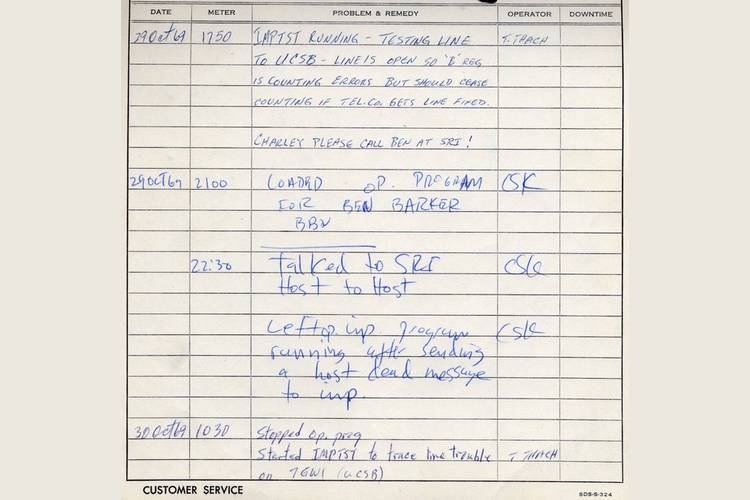 DATE METER PROBLEM & REMEDY OPERATOR DOWNTIME
29Oct69 1750 IMPTST RUNNING - TESTING LINE T. THACH
TO UCSB - LINE IS OPEN SO 'B' REG
IS COUNTING ERRORS BUT SHOULD CEASE
COUNTING IF TEL.CO. GETS LINE FIXED.
CHARLEY PLEASE CALL BEN AT SRI!
29OCT69 2100 LOADED OP. PROGRAM CSK
FOR BEN BARKER
BBN
22:30 Talked to SRI CSK
Host to Host
Left op. imp. program CSK
running after sending
a host dead message
to imp.
30Oct69 1030 Stopped op. prog
Started IMPTST to trace line trouble T THACH
on (UCSB)
CUSTOMER SERVICE SDS-S-324